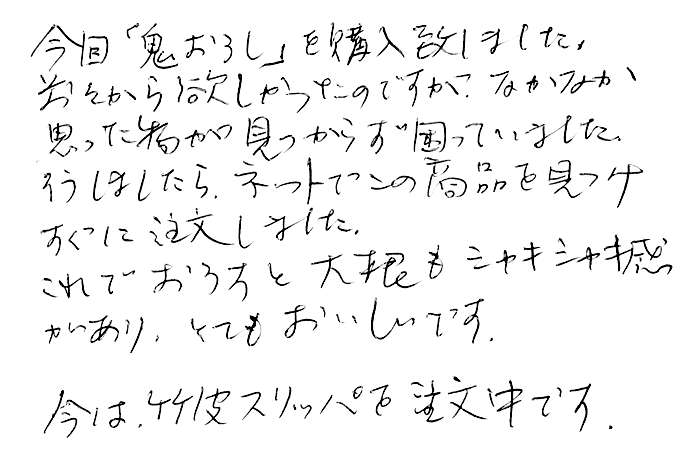 今回「鬼おろし」を購入致しました。
前々から欲しかったのですが、なかなか
思った物が見つからず困っていました。
そうしましたら、ネットでこの商品を見つけ
すぐに注文しました。
これでおろすと大根もシャキシャキ感
があり、とてもおいしいです。
今は、竹皮スリッパを注文中です。